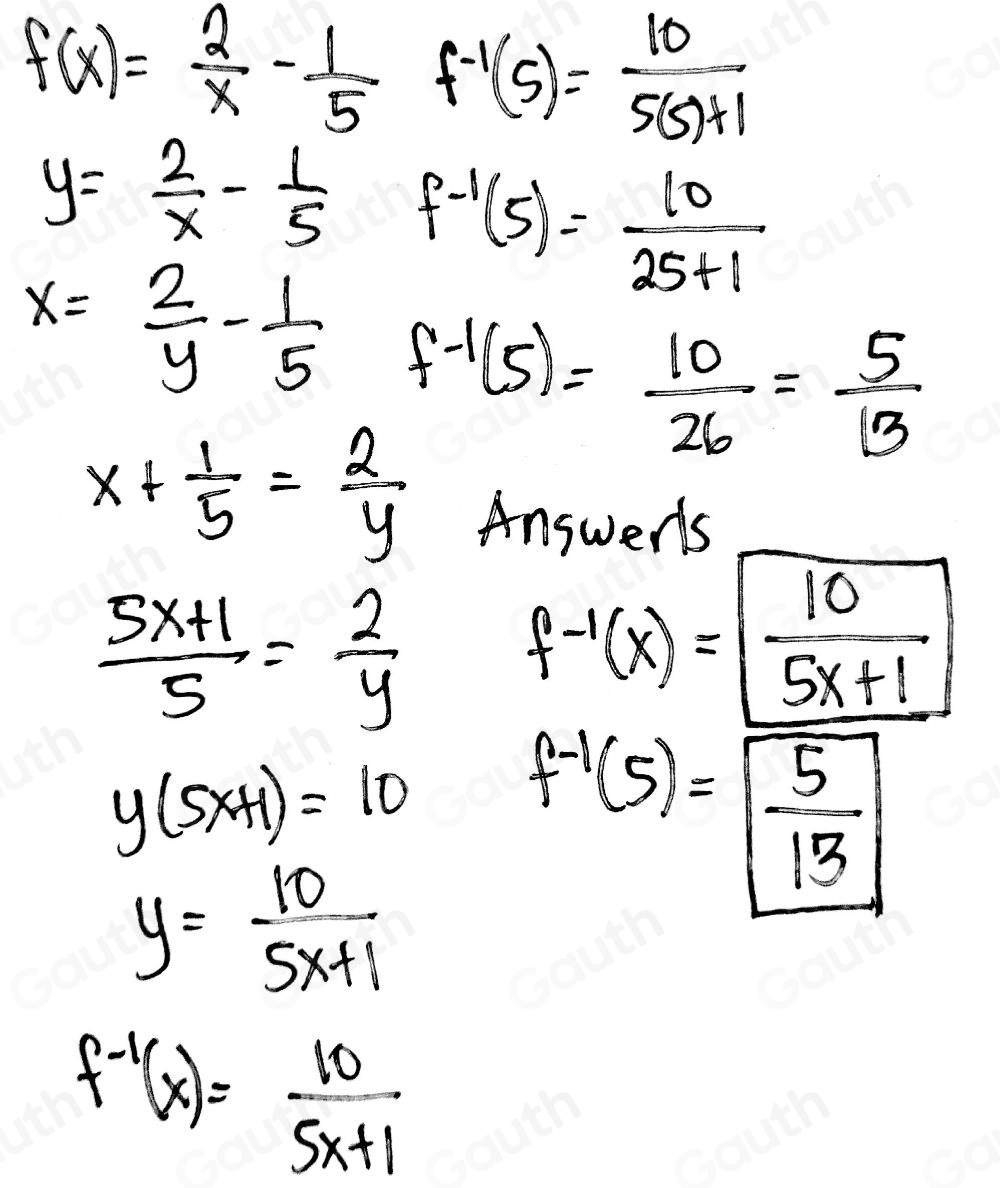 f(x) = 2/x - 1/5
y = 2/x - 1/5
x = 2/y - 1/5
x + 1/5 = 2/y
5x+1/5 = 2/y
y(5x+1) = 10
y = 10/5x+1
f⁻¹(x) = 10/5x+1
f⁻¹(5) = 10/5(5)+1
f⁻¹(5) = 10/25+1
f⁻¹(5) = 10/26 = 5/13
Answers
f⁻¹(x) = 10/5x+1
f⁻¹(5) = 5/13
Gauth